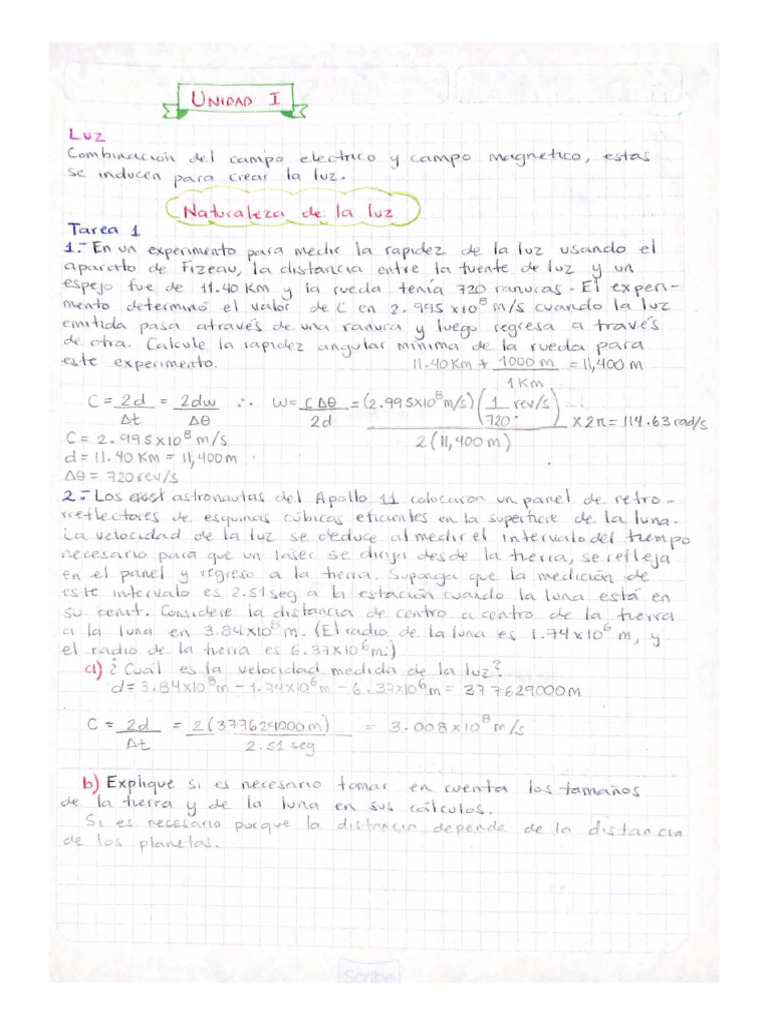 UNIDAD I
Luz
Combinación del campo electrico y campo magnetico, estas
se inducen para crear la luz.
Naturaleza de la luz
Tarea 1
1.- En un experimento para medir la rapidez de la luz usando el
aparato de Fizeau, la distancia entre la fuente de luz y un
espejo fue de 11.40 Km y la rueda tenía 720 ranuras. El experi-
mento determinó el valor de C en 2.995 x10⁸ m/s cuando la luz
emitida pasa através de una ranura y luego regresa a través
de otra. Calcule la rapidez angular mínima de la rueda para
este experimento.
11.40 Km + 1000 m / 1 Km = 11,400 m
C = 2d/Δt = 2dw/Δθ ∴ W = CΔθ/2d = (2.995x10⁸ m/s)(1/720 rev/s) / 2(11,400 m) x 2π = 114.63 rad/s
C = 2.995x10⁸ m/s
d = 11.40 Km = 11,400 m
Δθ = 720 rev/s
2.- Los astronautas del Apollo 11 colocaron un panel de retro-
rreflectores de esquinas cúbicas eficientes en la superficie de la luna.
La velocidad de la luz se deduce al medir el intervalo del tiempo
necesario para que un láser se dirija desde la tierra, se refleja
en el panel y regreso a la tierra. Suponga que la medición de
este intervalo es 2.51 seg a la estación cuando la luna está en
su cenit. Considere la distancia de centro a centro de la tierra
a la luna en 3.84x10⁸ m. (El radio de la luna es 1.74x10⁶ m, y
el radio de la tierra es 6.37x10⁶m.)
a) ¿Cuál es la velocidad medida de la luz?
d = 3.84x10⁸m - 1.74x10⁶m - 6.37x10⁶m = 377629000m
C = 2d/Δt = 2(377629000m)/2.51 seg = 3.008x10⁸ m/s
b) Explique si es necesario tomar en cuenta los tamaños
de la tierra y de la luna en sus cálculos.
Si es necesario porque la distancia depende de la distancia
de los planetas.
Scribe